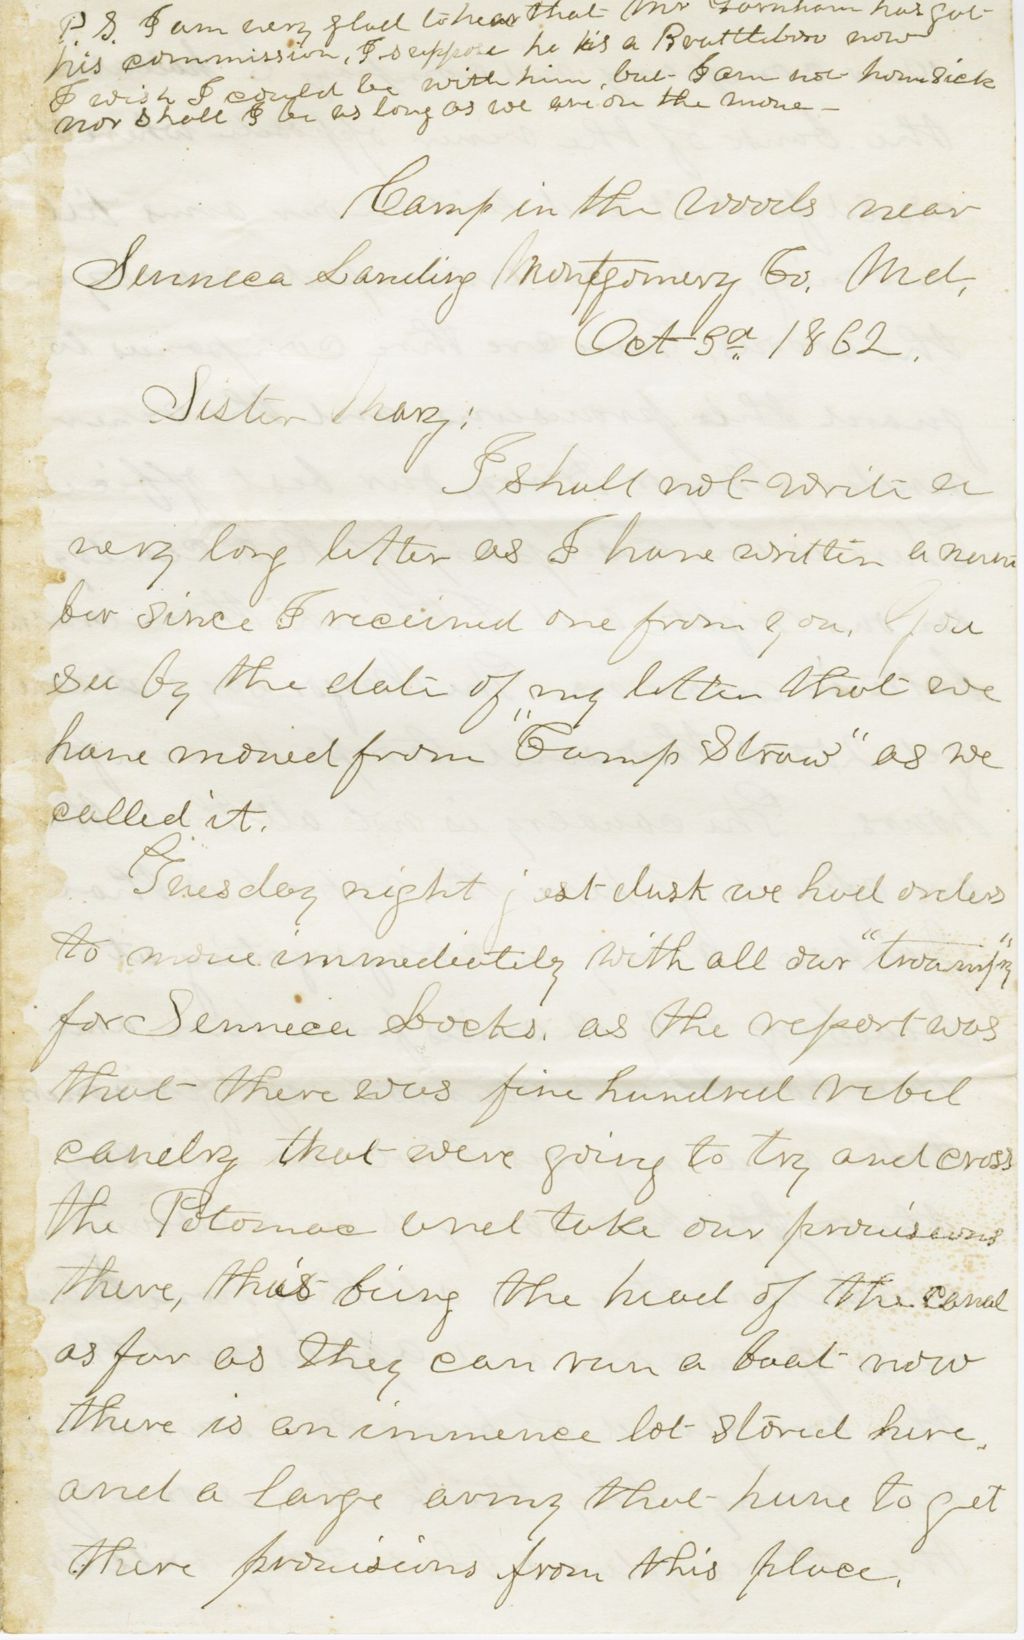 P. S. I am very glad to hear that Mr Farnham has got
his commission, I suppose he is a Brattleboro now
I wish I could be with him, but I am not homsick
nor shall I be as long as we are on the move -
Camp in the woods near
Senneca Landing Montgomery Co. Md.
Oct 3d 1862.
Sister Mary;
I shall not write a
very long letter as I have written a num
ber since I received one from you. You
see by the date of my letter that we
have moved from "Camp Straw" as we
called it.
Tuesday night just dusk we had orders
to move immediately with all our
for Senneca Locks. as the report was
that there was five hundred rebel
cavelry that were going to try and cross
the Potomac and take our provisions
there, this being the head of the canal
as far as they can run a boat now
there is an immence lot stored here.
and a large army that have to get
there provisions from this place.